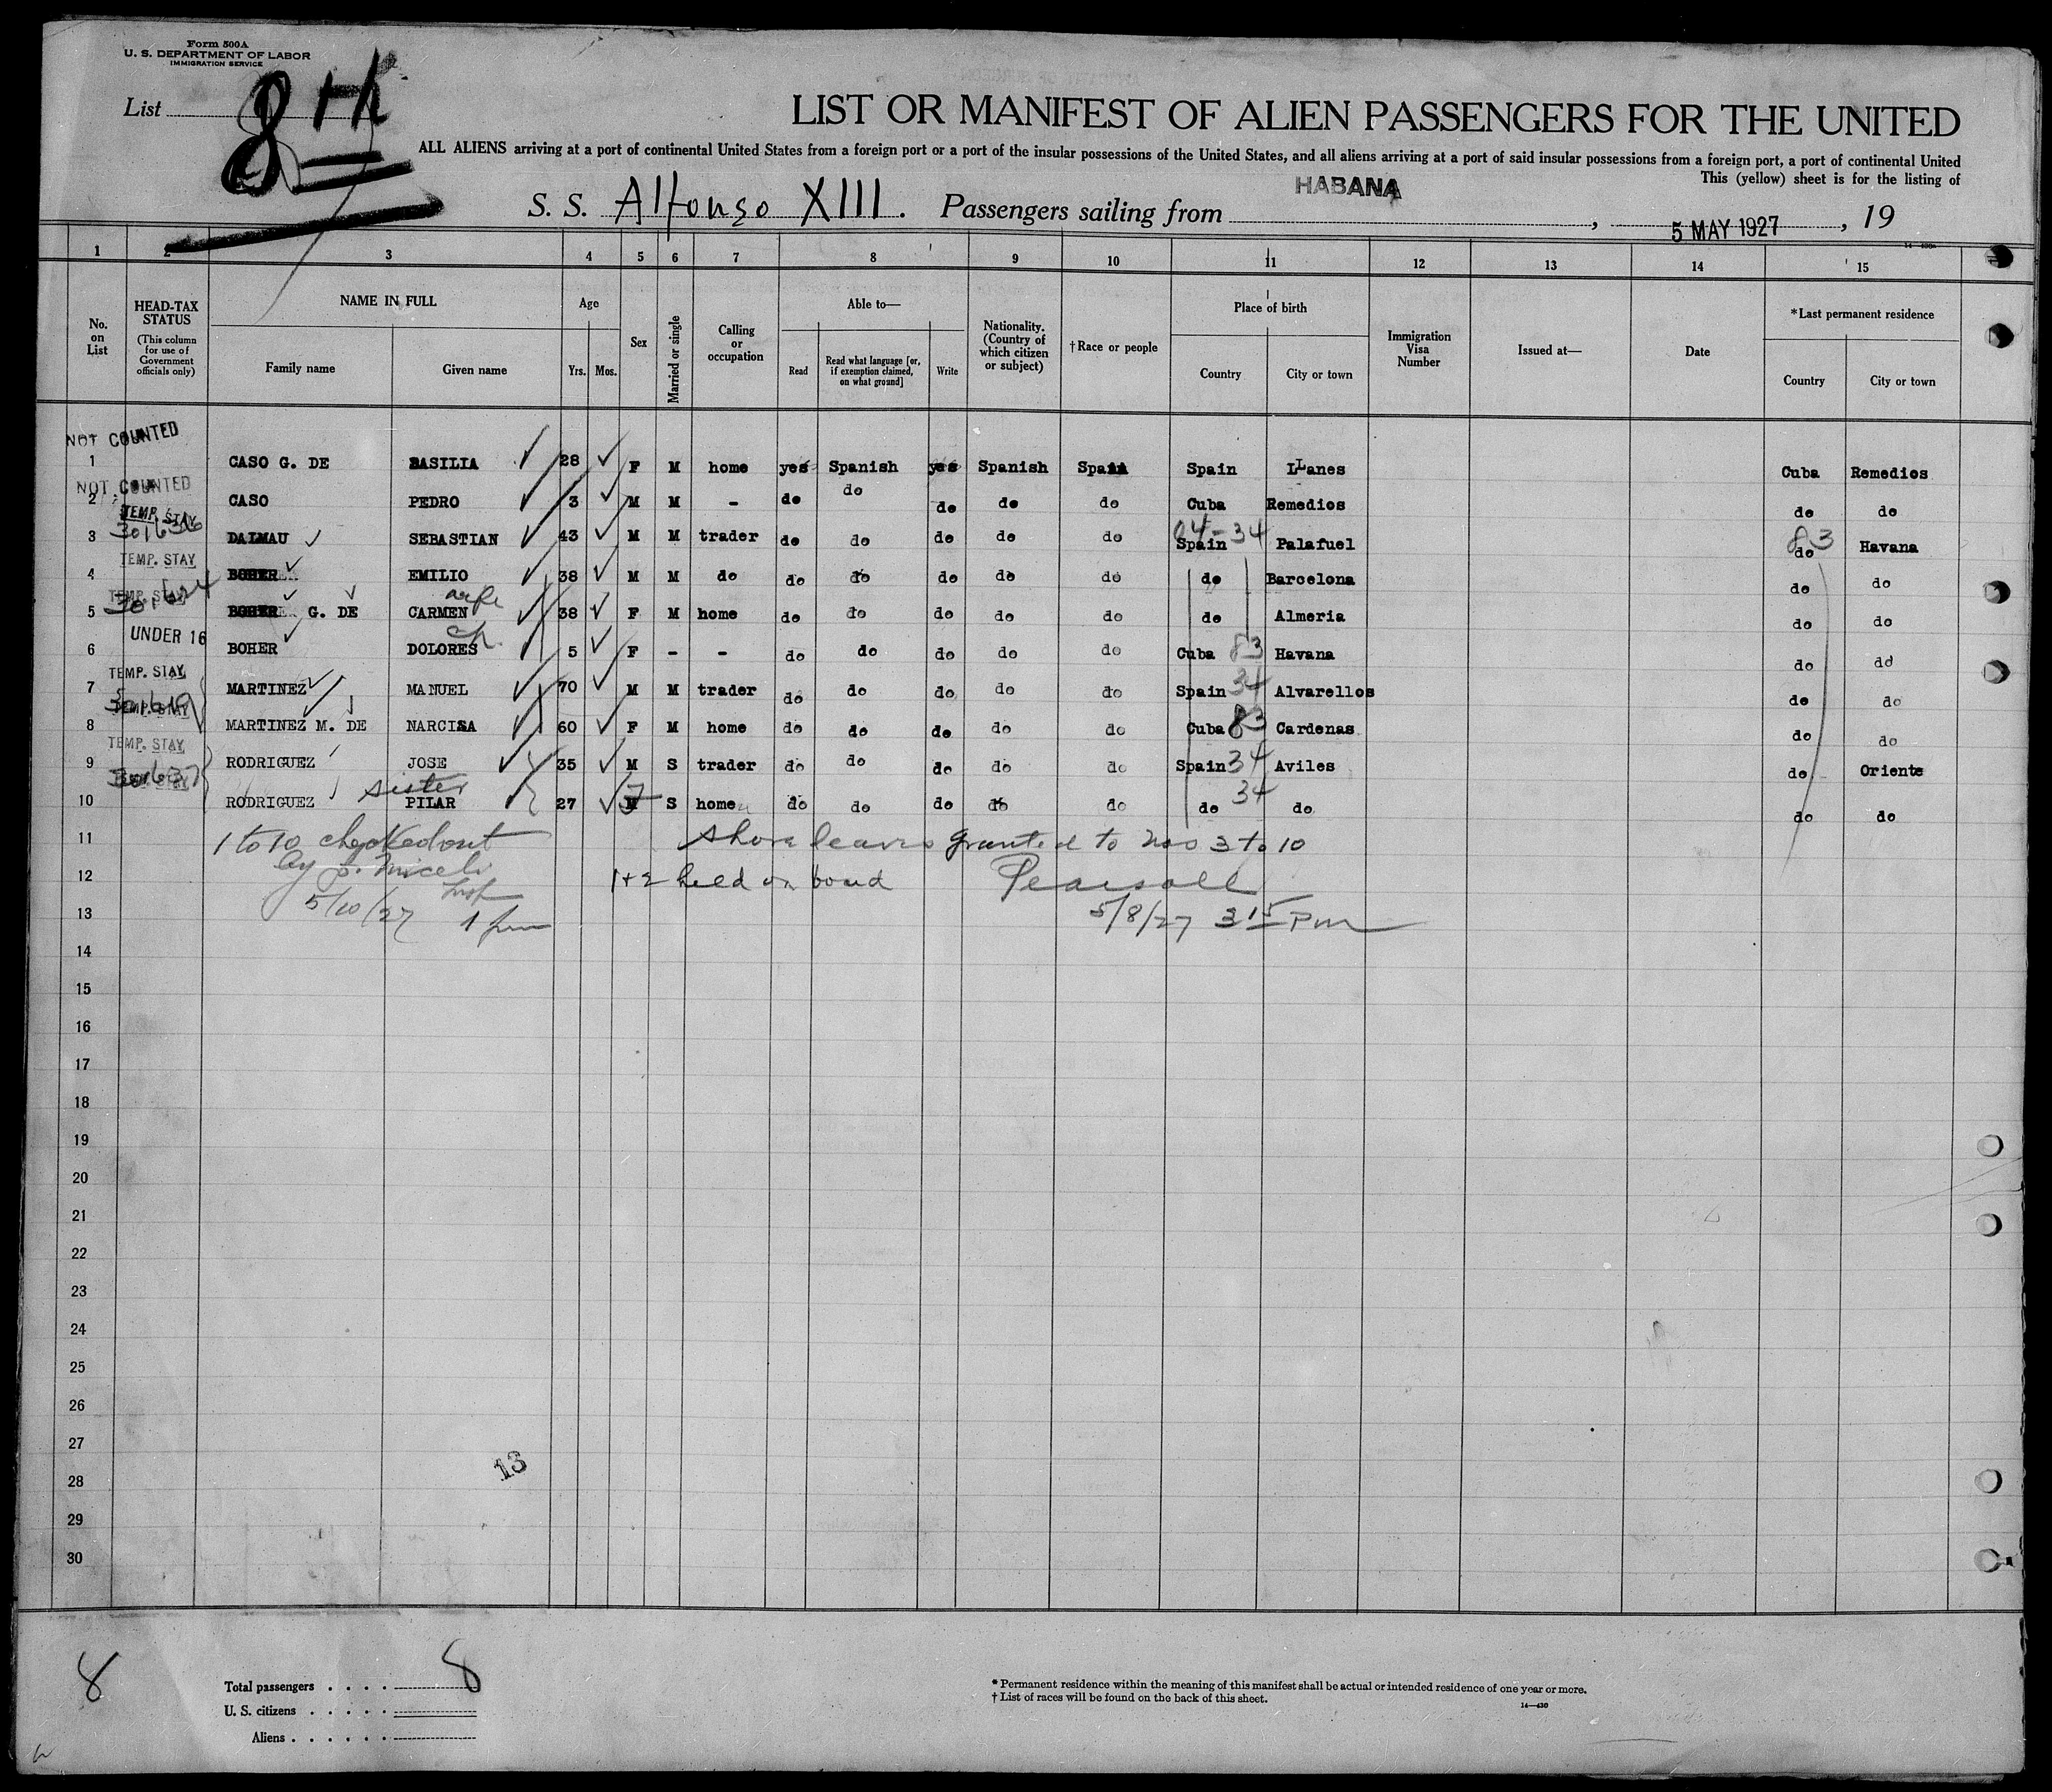 Form 500A
U. S. DEPARTMENT OF LABOR
IMMIGRATION SERVICE
List 8th
LIST OR MANIFEST OF ALIEN PASSENGERS FOR THE UNITED
ALL ALIENS arriving at a port of continental United States from a foreign port or a port of the insular possessions of the United States, and all aliens arriving at a port of said insular possessions from a foreign port, a port of continental United
This (yellow) sheet is for the listing of
S. S. Alfonso XIII. Passengers sailing from HABANA, 5 MAY 1927, 19
1 2 3 4 5 6 7 8 9 10 11 12 13 14 15
No. on List
HEAD-TAX STATUS (This column for use of Government officials only)
NAME IN FULL
Family name Given name
Age
Yrs. Mos.
Sex
Married or single
Calling or occupation
Able to—
Read
Read what language [or, if exemption claimed, on what ground]
Write
Nationality. (Country of which citizen or subject)
†Race or people
Place of birth
Country City or town
Immigration Visa Number
Issued at—
Date
*Last permanent residence
Country City or town
NOT COUNTED
1 CASO G. DE BASILIA 28 F M home yes Spanish yes Spanish Spain Spain LLanes Cuba Remedios
NOT COUNTED
2 CASO PEDRO 3 M M - do do do do do Cuba Remedios do do
TEMP. STAY
301636
3 DALMAU SEBASTIAN 43 M M trader do do do do do 04-34 Spain Palafuel 83 do Havana
TEMP. STAY
4 BOHER EMILIO 38 M M do do do do do do do Barcelona do do
TEMP. STAY
5 BOHER G. DE CARMEN wife 38 F M home do do do do do do Almeria do do
UNDER 16
6 BOHER DOLORES ch 5 F - - do do do do do Cuba 83 Havana do do
TEMP. STAY
7 MARTINEZ MANUEL 70 M M trader do do do do do Spain 34 Alvarellos do do
TEMP. STAY
8 MARTINEZ M. DE NARCISA 60 F M home do do do do do Cuba 83 Cardenas do do
TEMP. STAY
9 RODRIGUEZ JOSE 35 M S trader do do do do do Spain 34 Aviles do Oriente
301637
10 RODRIGUEZ sister PILAR 27 F S home do do do do do do 34 do do do
11 1 to 10 checked out shore leaves granted to nos 3 to 10
by J. Miceli
12 1+2 held on bond Pearsall
Insp
13 5/10/27 1 pm 5/8/27 3 15 PM
14
15
16
17
18
19
20
21
22
23
24
25
26
27
13
28
29
30
8
Total passengers . . . . 8
U. S. citizens . . . . .
Aliens . . . . . .
* Permanent residence within the meaning of this manifest shall be actual or intended residence of one year or more.
† List of races will be found on the back of this sheet.
14—430